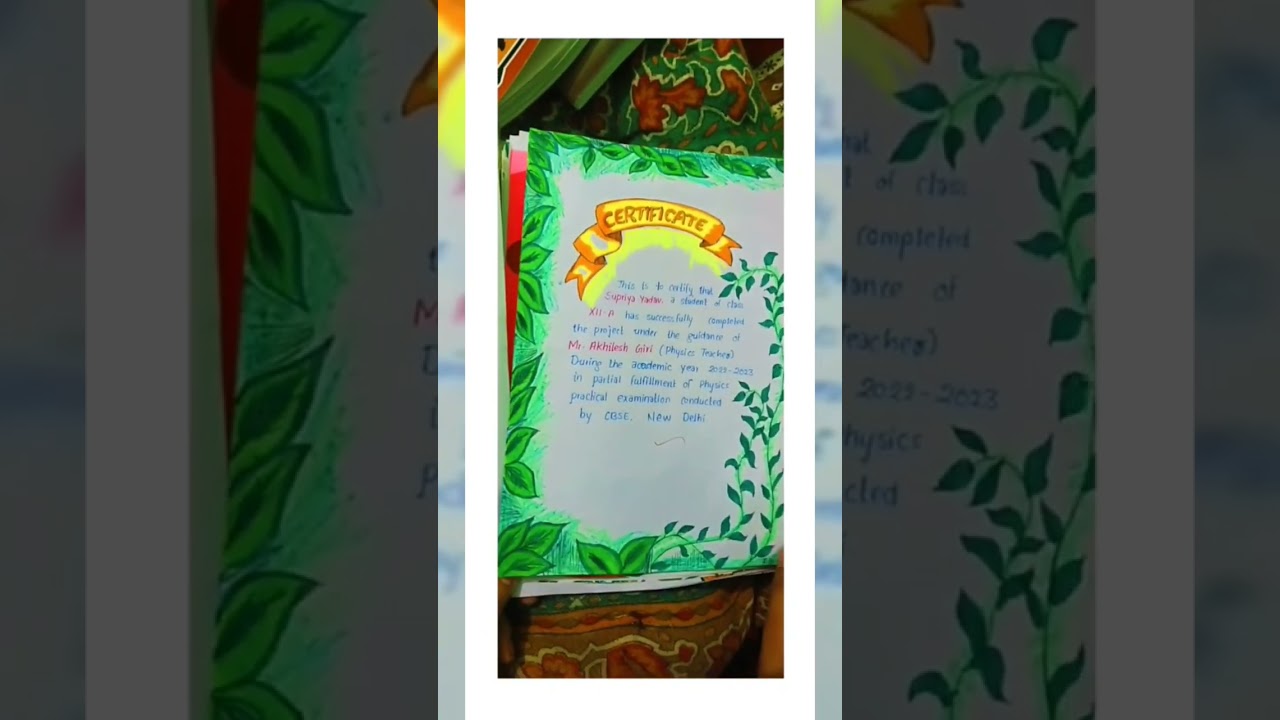 CERTIFICATE
This is to certify that
Supriya Yadav. a student of class
XII-A has successfully completed
the project under the guidance of
Mr. Akhilesh Giri (Physics Teacher)
During the academic year 2022-2023
in partial fulfillment of Physics
practical examination conducted
by CBSE. New Delhi